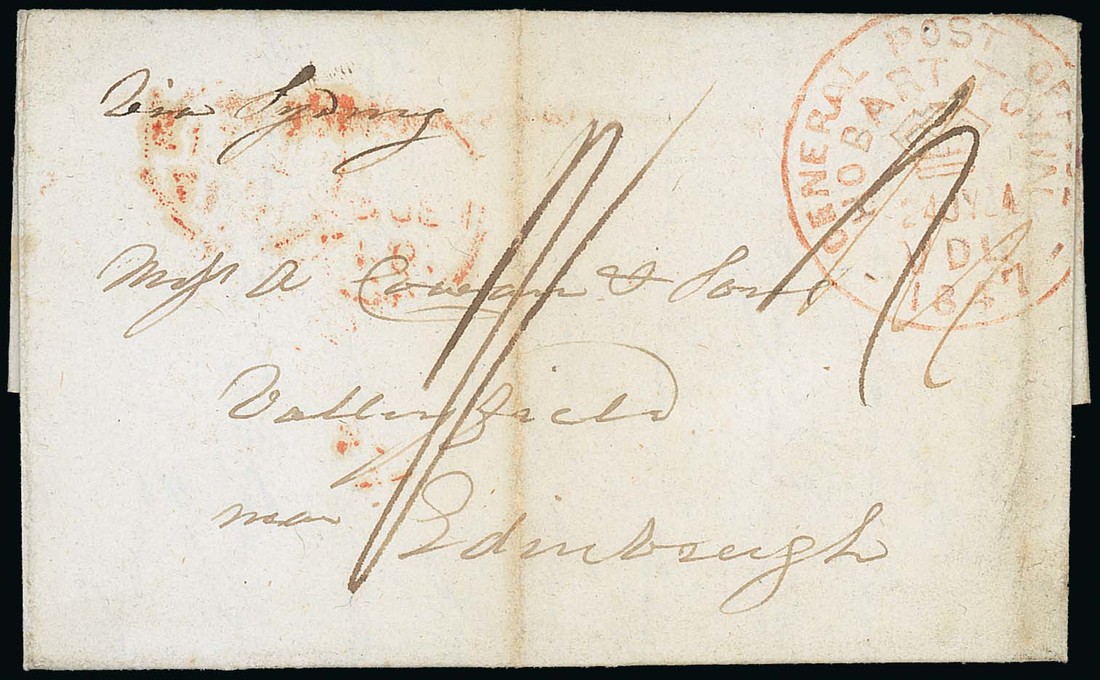 Via Sydney
GENERAL POST OFFICE
HOBART TOWN
Messrs A Cowan & Sons
Valleyfield
near Edinburgh